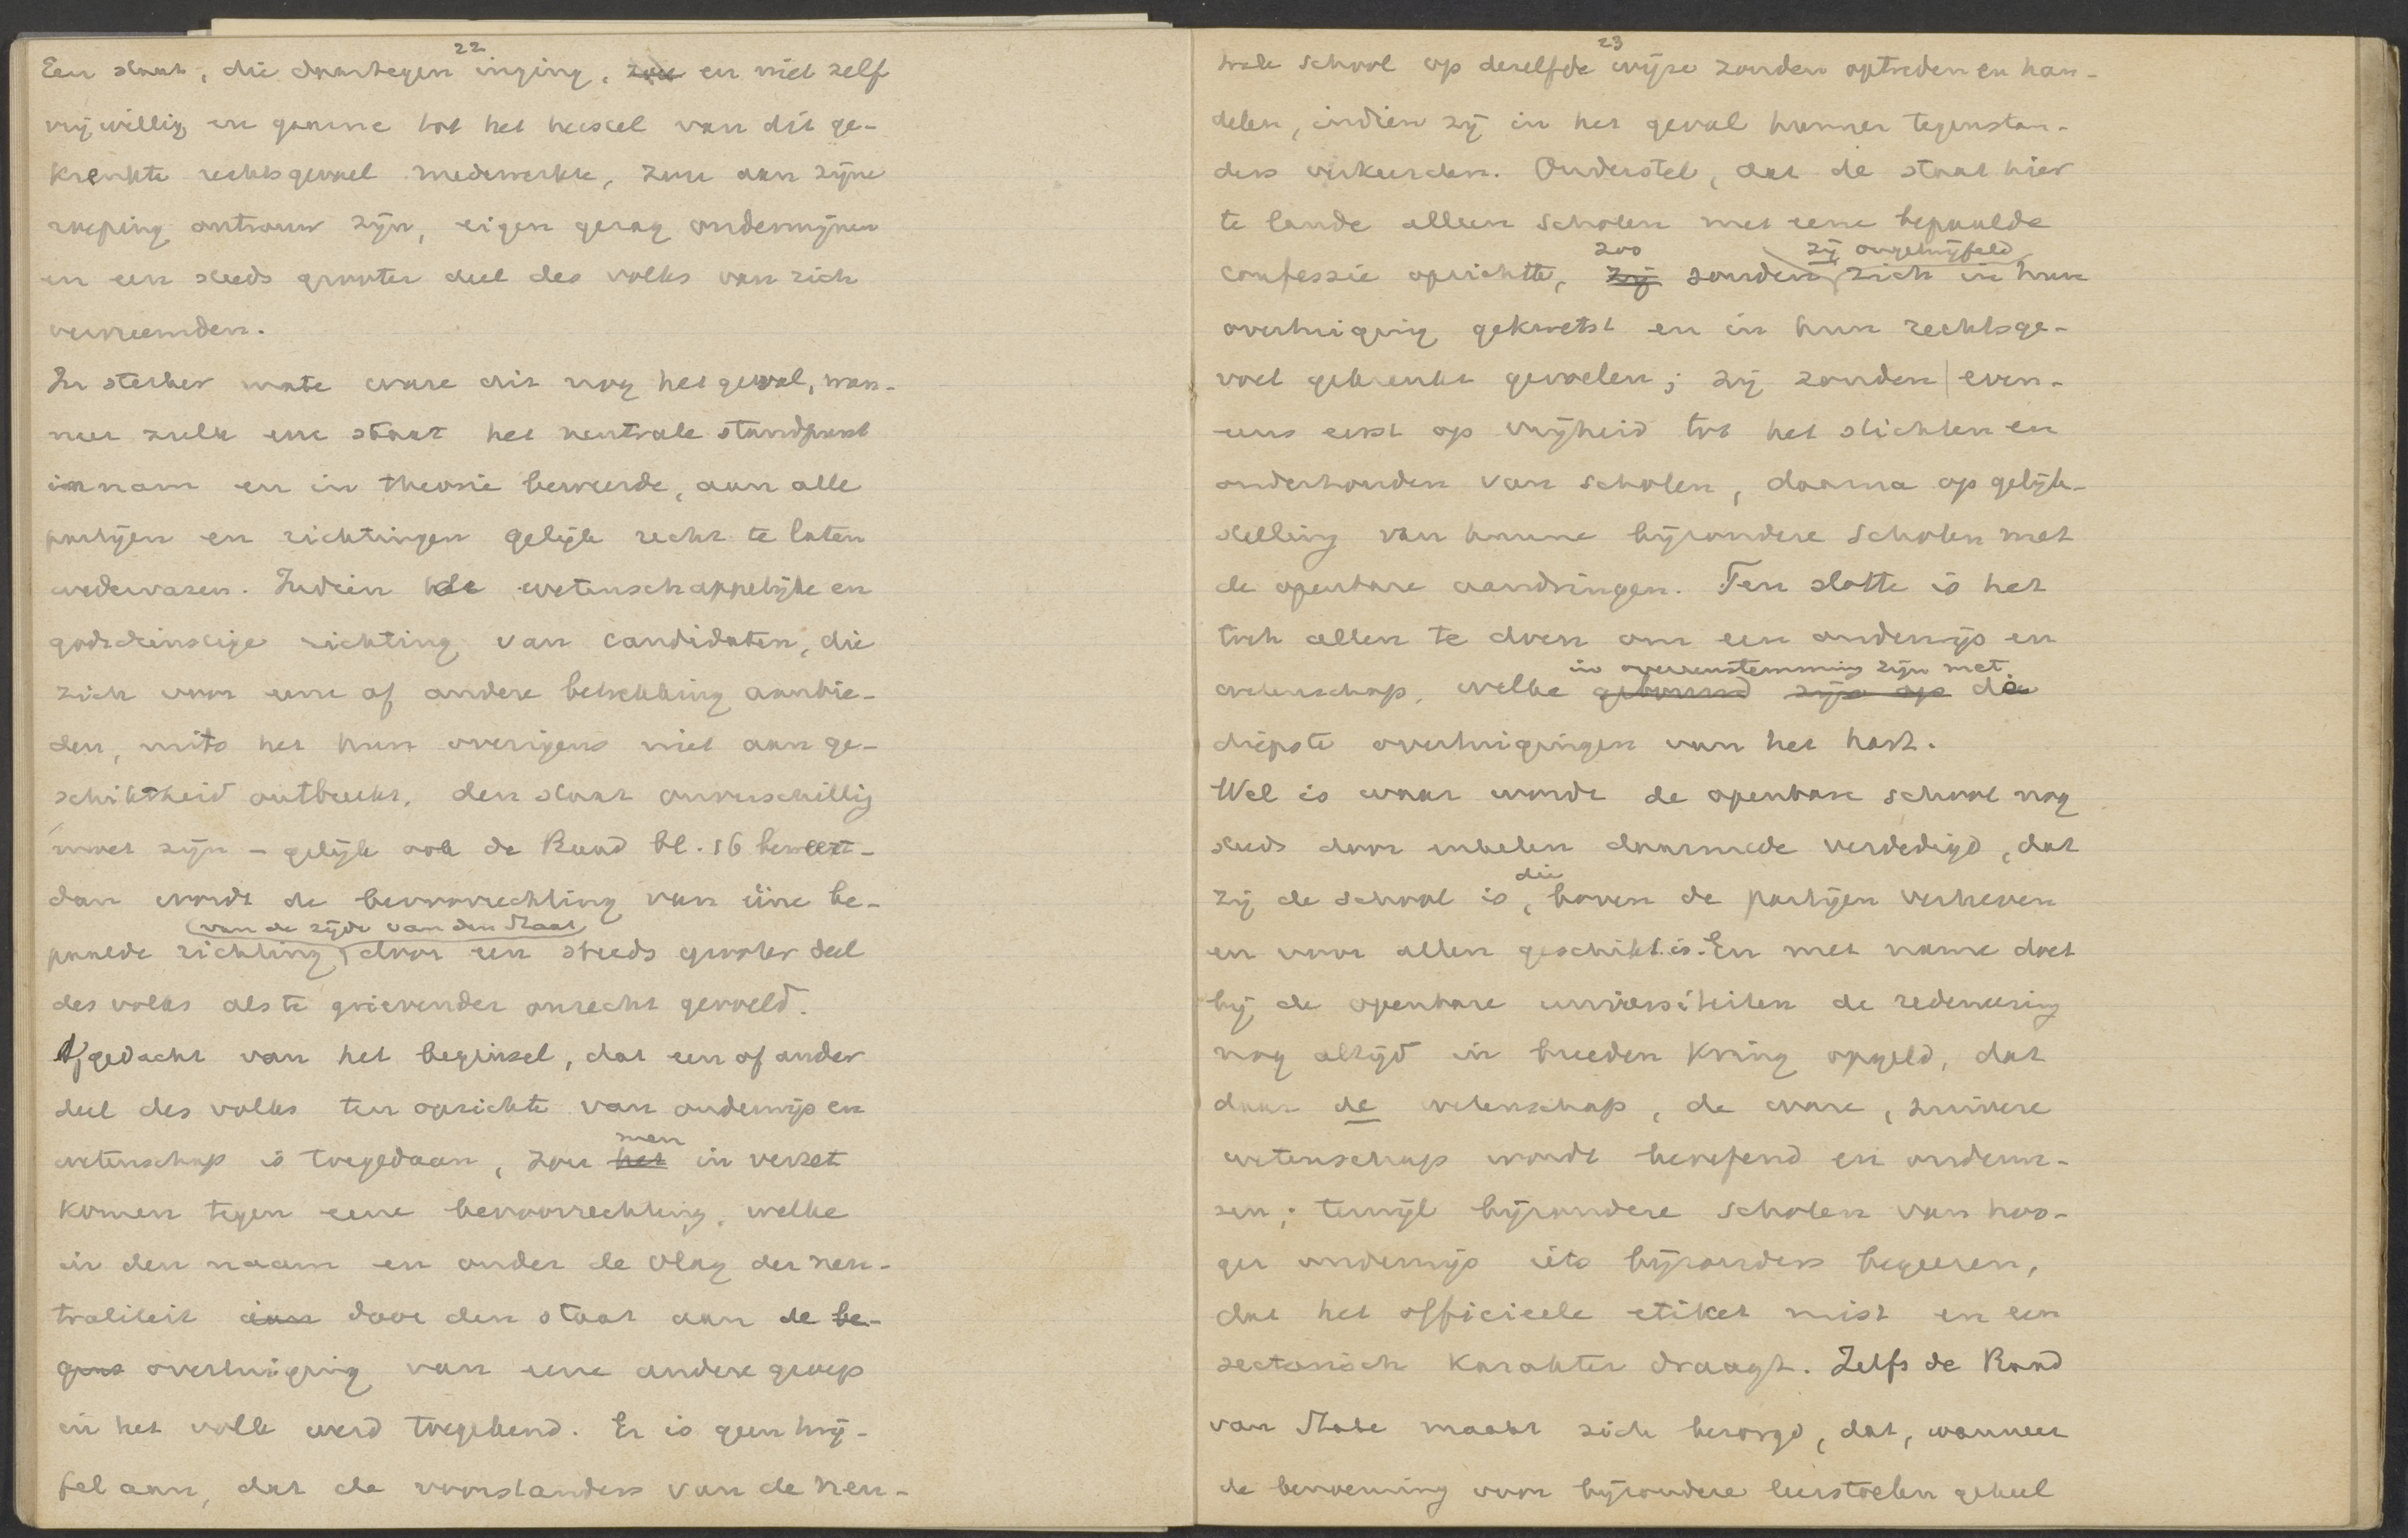 22
Een staat, die daartegen inging, zou en niet zelf
vrijwillig en gaarne tot het herstel van dit ge-
krenkte rechtsgevoel medewerkte, zou aan zijne
roeping ontrouw zijn, eigen gezag ondermijnen
en een steeds grooter deel des volks van zich
vervreemden.
In sterker mate ware dit nog het geval, wan-
neer zulk een staat het neutrale standpunt
innam en in theorie beweerde, aan alle
partijen en richtingen gelijk recht te laten
wedervaren. Indien de wetenschappelijke en
godsdienstige richting van candidaten, die
zich voor eene of andere betrekking aanbie-
den, mits het hun overigens niet aan ge-
schiktheid ontbreekt, den staat onverschillig
moet zijn - gelijk ook de Raad bl. 16 beweert -
dan wordt de bevoorrechting van ééne be-
van de zijde van den Staat
paalde richting, door een steeds grooter deel
des volks als te grievender onrecht gevoeld.
Afgedacht van het beginsel, dat een of ander
deel des volks ten opzichte van onderwijs en
men
wetenschap is toegedaan, zou het in verzet
komen tegen eene bevoorrechting, welke
in den naam en onder de vlag der neu-
traliteit aan door den staat aan de be-
gens overtuiging van eene andere groep
in het volk werd toegekend. Er is geen twij-
fel aan, dat de voorstanders van de neu-
23
trale school op dezelfde wijze zouden optreden en han-
delen, indien zij in het geval hunner tegenstan-
ders verkeerden. Onderstel, dat de staat hier
te lande alleen scholen met eene bepaalde
zoo zij ongetwijfeld
confessie oprichtte, zij zouden zich in hun
overtuiging gekwetst en in hun rechtsge-
voel gekrenkt gevoelen; zij zouden even-
eens eerst op vrijheid tot het stichten en
onderhouden van scholen, daarna op gelijk-
stelling van hunne bijzondere scholen met
de openbare aandringen. Ten slotte is het
toch allen te doen om een onderwijs en
in overeenstemming zijn met
wetenschap, welke gebouwd zijn op de
diepste overtuigingen van het hart.
Wel is waar wordt de openbare school nog
steeds door enkelen daarmede verdedigd, dat
die
zij de school is, boven de partijen verheven
en voor allen geschikt is. En met name doet
bij de openbare universiteiten de redeneering
nog altijd in breeden kring opgeld, dat
daar de wetenschap, de ware, zuivere
wetenschap wordt beoefend en onderwe-
zen; terwijl bijzondere scholen van hoo-
ger onderwijs iets bijzonders begeeren,
dat het officieele etiket mist en een
sectarisch karakter draagt. Zelfs de Raad
van State maakt zich bezorgd, dat, wanneer
de benoeming voor bijzondere leerstoelen geheel